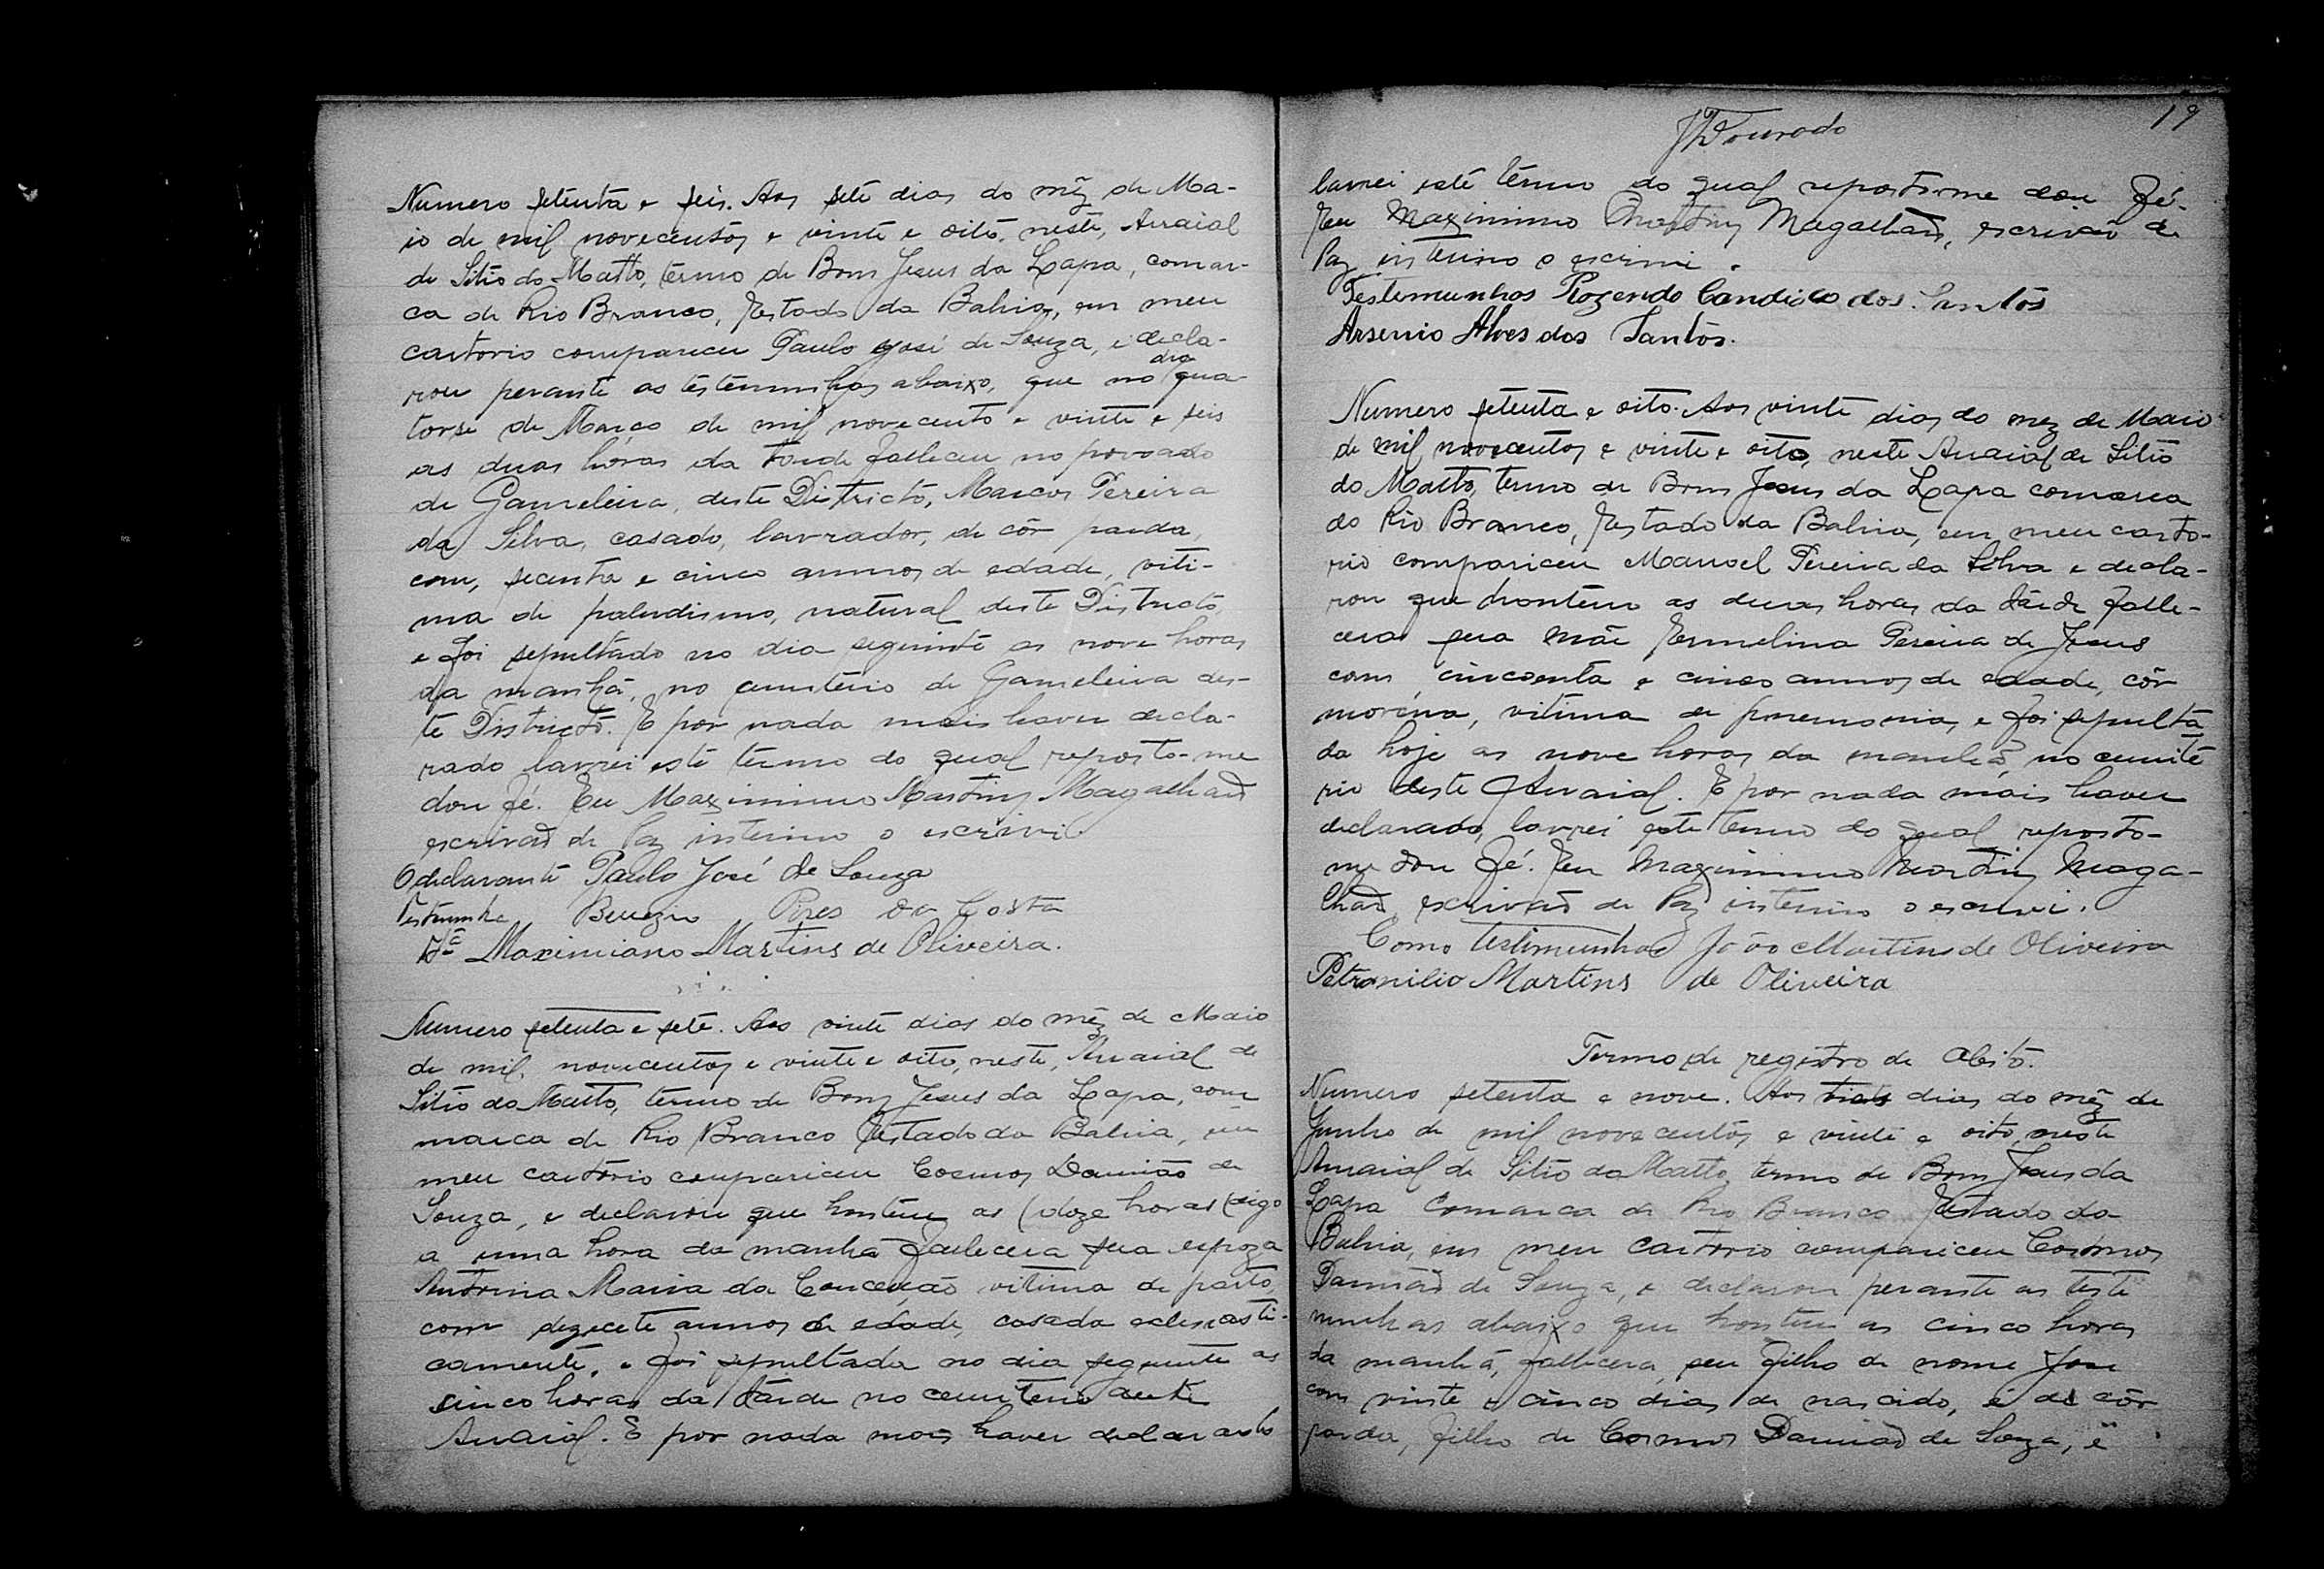 Numero setenta e seis. Aos sete dias do mêz de Ma-
io de mil novecentos e vinte e oito, neste, Arraial
de Sitio do Matto, termo de Bom Jesus da Lapa, comar-
ca de Rio Branco, Estado da Bahia, em meu
cartorio compareceu Paulo José de Souza, e decla-
rou perante as testemunhas abaixo, que no dia qua-
torse de Março de mil novecento e vinte e seis
as duas horas da tarde falleceu no povoado
de Gameleira, deste Districto, Marcos Pereira
da Silva, casado, lavrador, de côr parda,
com, secenta e cinco annos de edade, viti-
ma de paludismo, natural deste Districto,
e foi sepultado no dia seguinte as nove horas
da manhã, no cemiterio de Gameleira des-
te Districto. E por nada mais haver decla-
rado lavrei este termo do qual reposto-me
dou fé. Eu Maximinno Martins Magalhães
escrivão de Paz interino o escrivi.
O declarante Paulo José de Souza
Testemunha Benezio Pires da Costa
Maximiano Martins de Oliveira.
Numero setenta e sete. Aos vinte dias do mêz de Maio
de mil novecentos e vinte e oito, neste, Arraial de
Sitio do Matto, termo de Bom Jesus da Lapa, com
marca de Rio Branco Estado da Bahia, em
meu cartorio compariceu Cosmos Damião de
Souza, e declarou que hontem as (doze horas (digo
a uma hora da manhã fallecera sua espoza
Antonia Maria da Conceição vitima de parto,
com dezecete annos de edade, casada eclesiasti-
camente, e foi sepultada no dia seguinte as
cinco horas da tarde no cemiterio deste
Arraial. E por nada mais haver declarado
19
JDourado
lavrei este termo do qual reposto-me dou fé.
Eu Maximinno Martins Magalhães, escrivão de
Paz interino o escrivi.
Testemunhas Rozendo Candido dos Santos
Arsenio Alves dos Santos.
Numero setenta e oito. Aos vinte dias do mez de Maio
de mil novecentos e vinte e oito, neste Arraial de Sitio
do Matto, termo de Bom Jesus da Lapa comarca
do Rio Branco, Estado da Bahia, em meu carto-
rio compariceu Manoel Pereira da Silva e decla-
rou que hontem as duas horas da tarde falle-
cera sua mãe Ermelina Pereira de Jesus
com cincoenta e cinco annos de edade, côr
morena, vitima de pneumonia, e foi sepulta
da hoje as nove horas da manhã, no cemite
rio deste Arraial. E por nada mais haver
declarado, lavrei este termo do qual reposto-
me dou fé. Eu Maximinno Martins Maga-
lhães, escrivão de Paz interino o escrivi.
Como testimunhas João Martins de Oliveira
Petronilio Martins de Oliveira
Termo de registro de Obito.
Numero setenta e nove. Aos dias do mêz de
Junho de mil novecentos e vinte e oito, neste
Arraial de Sitio do Matto, termo de Bom Jesus da
Lapa Comarca de Rio Branco Estado da
Bahia, em meu cartorio compariceu Cosmos
Damião de Souza, e declarou perante as teste
munhas abaixo que hontem as cinco horas
da manhã, fallecera, seu filho de nome José
com vinte e cinco dias de nascido, e de côr
parda, filho de Cosmos Damião de Souza, e